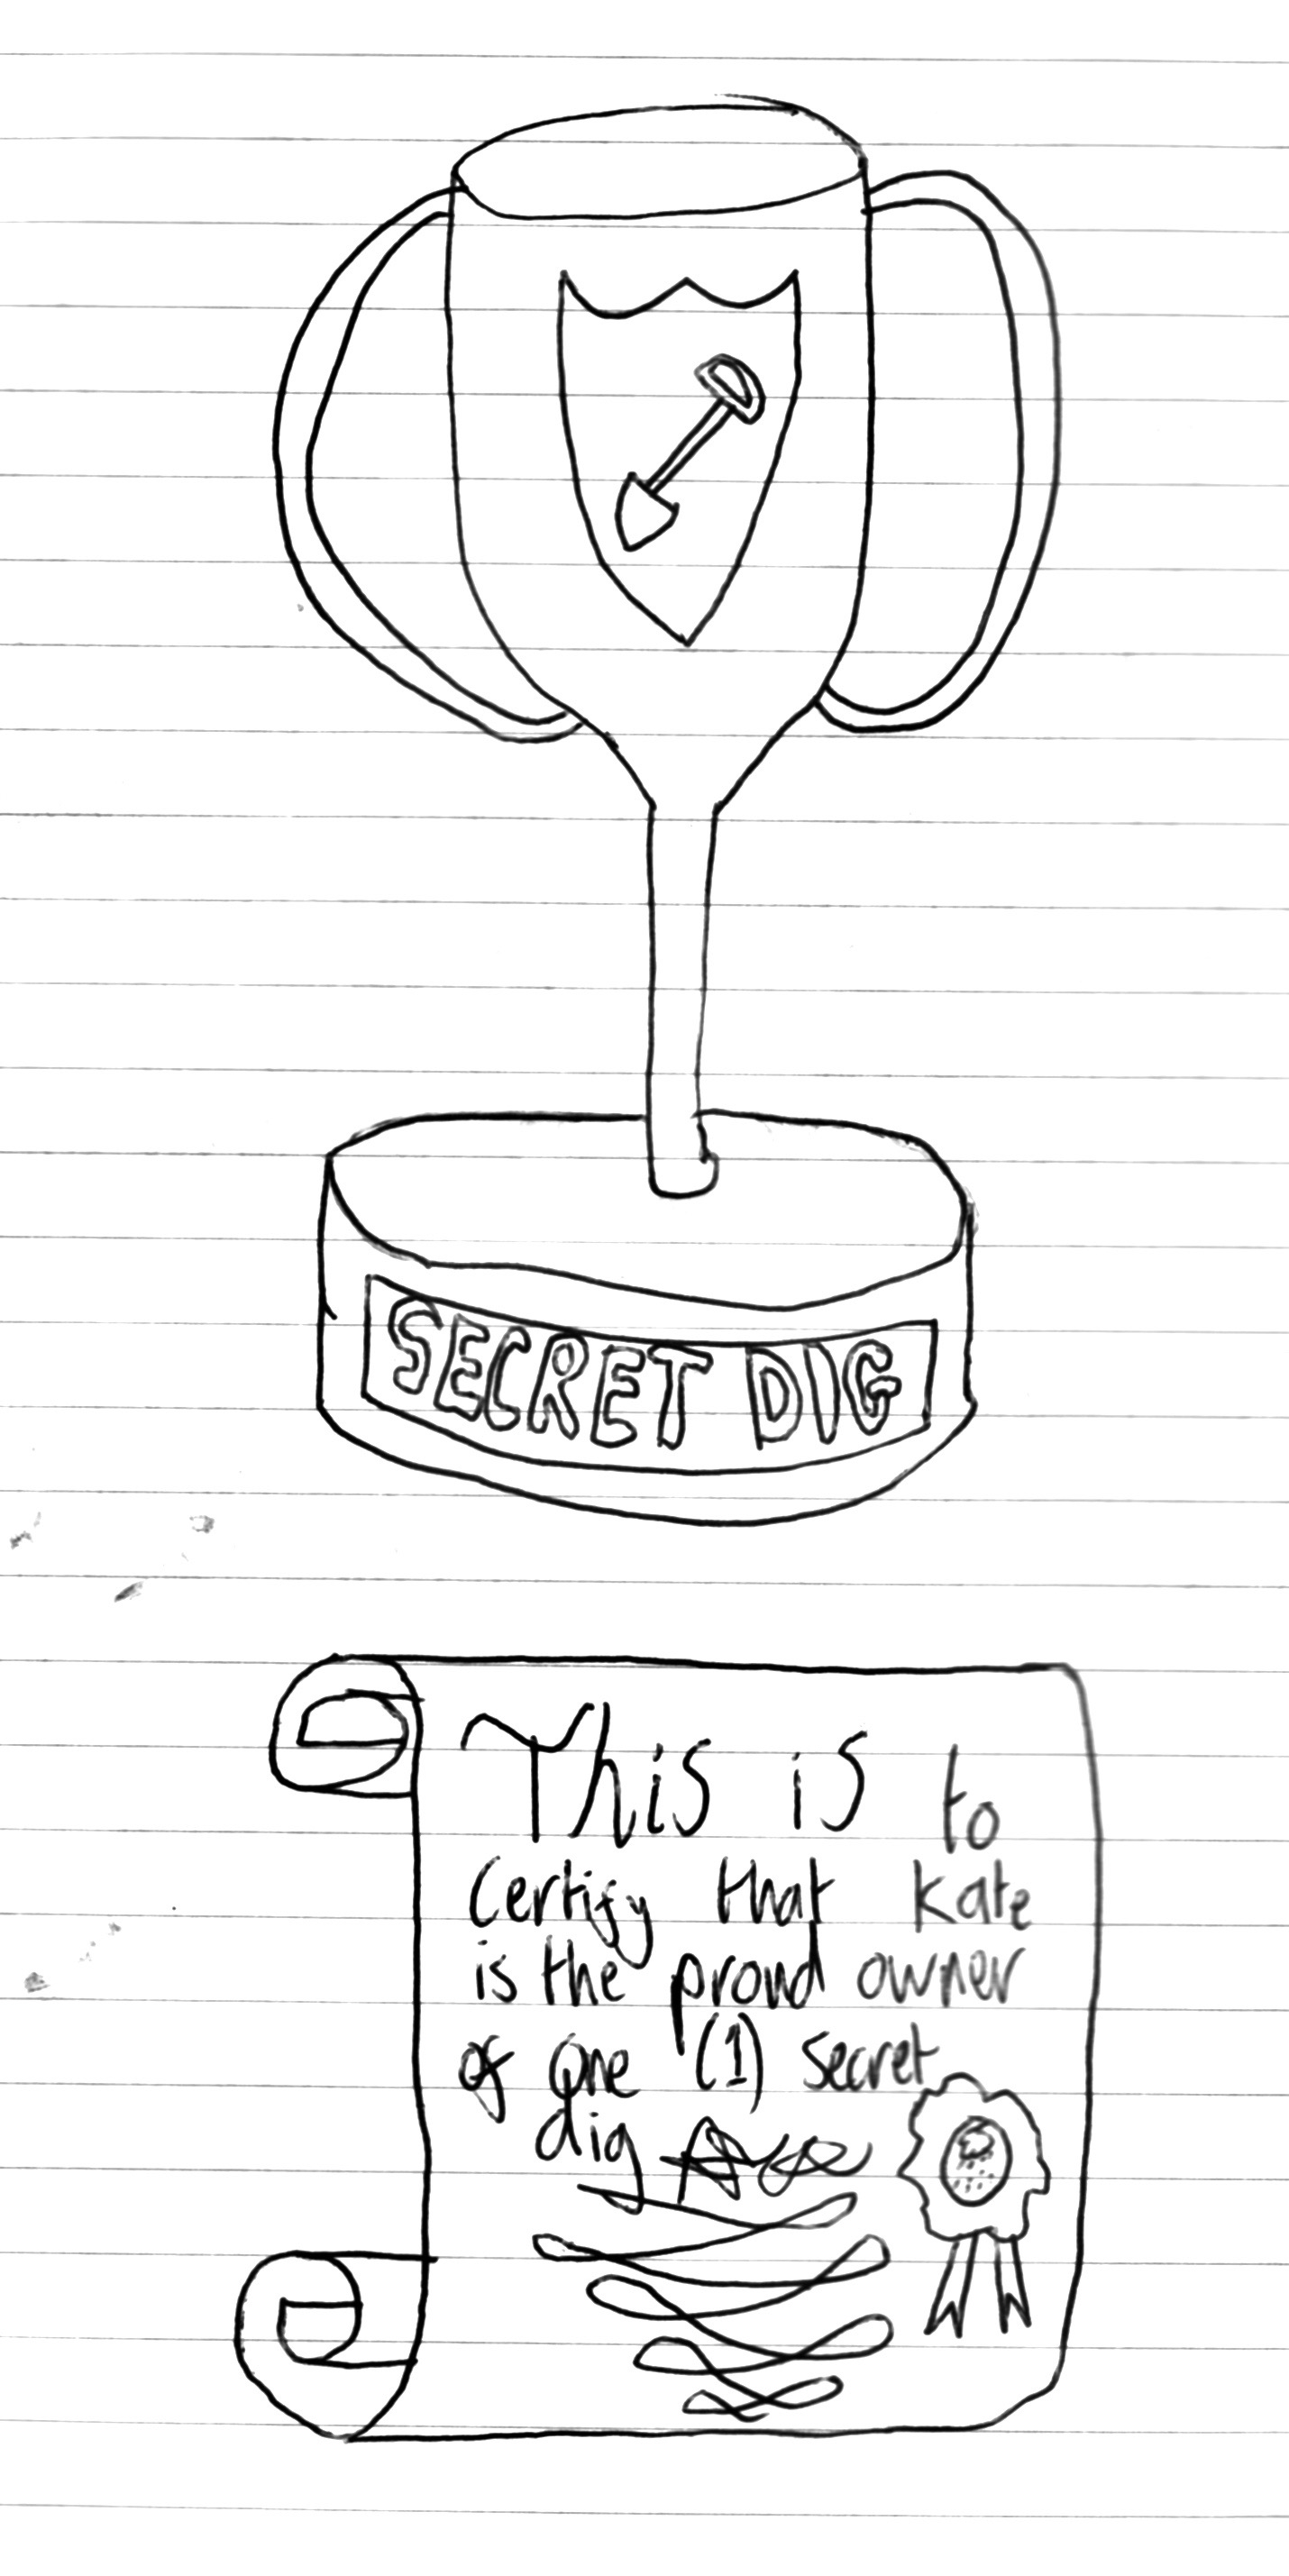 SECRET DIG
This is to
Certify that Kate
is the proud owner
of one (1) secret
dig